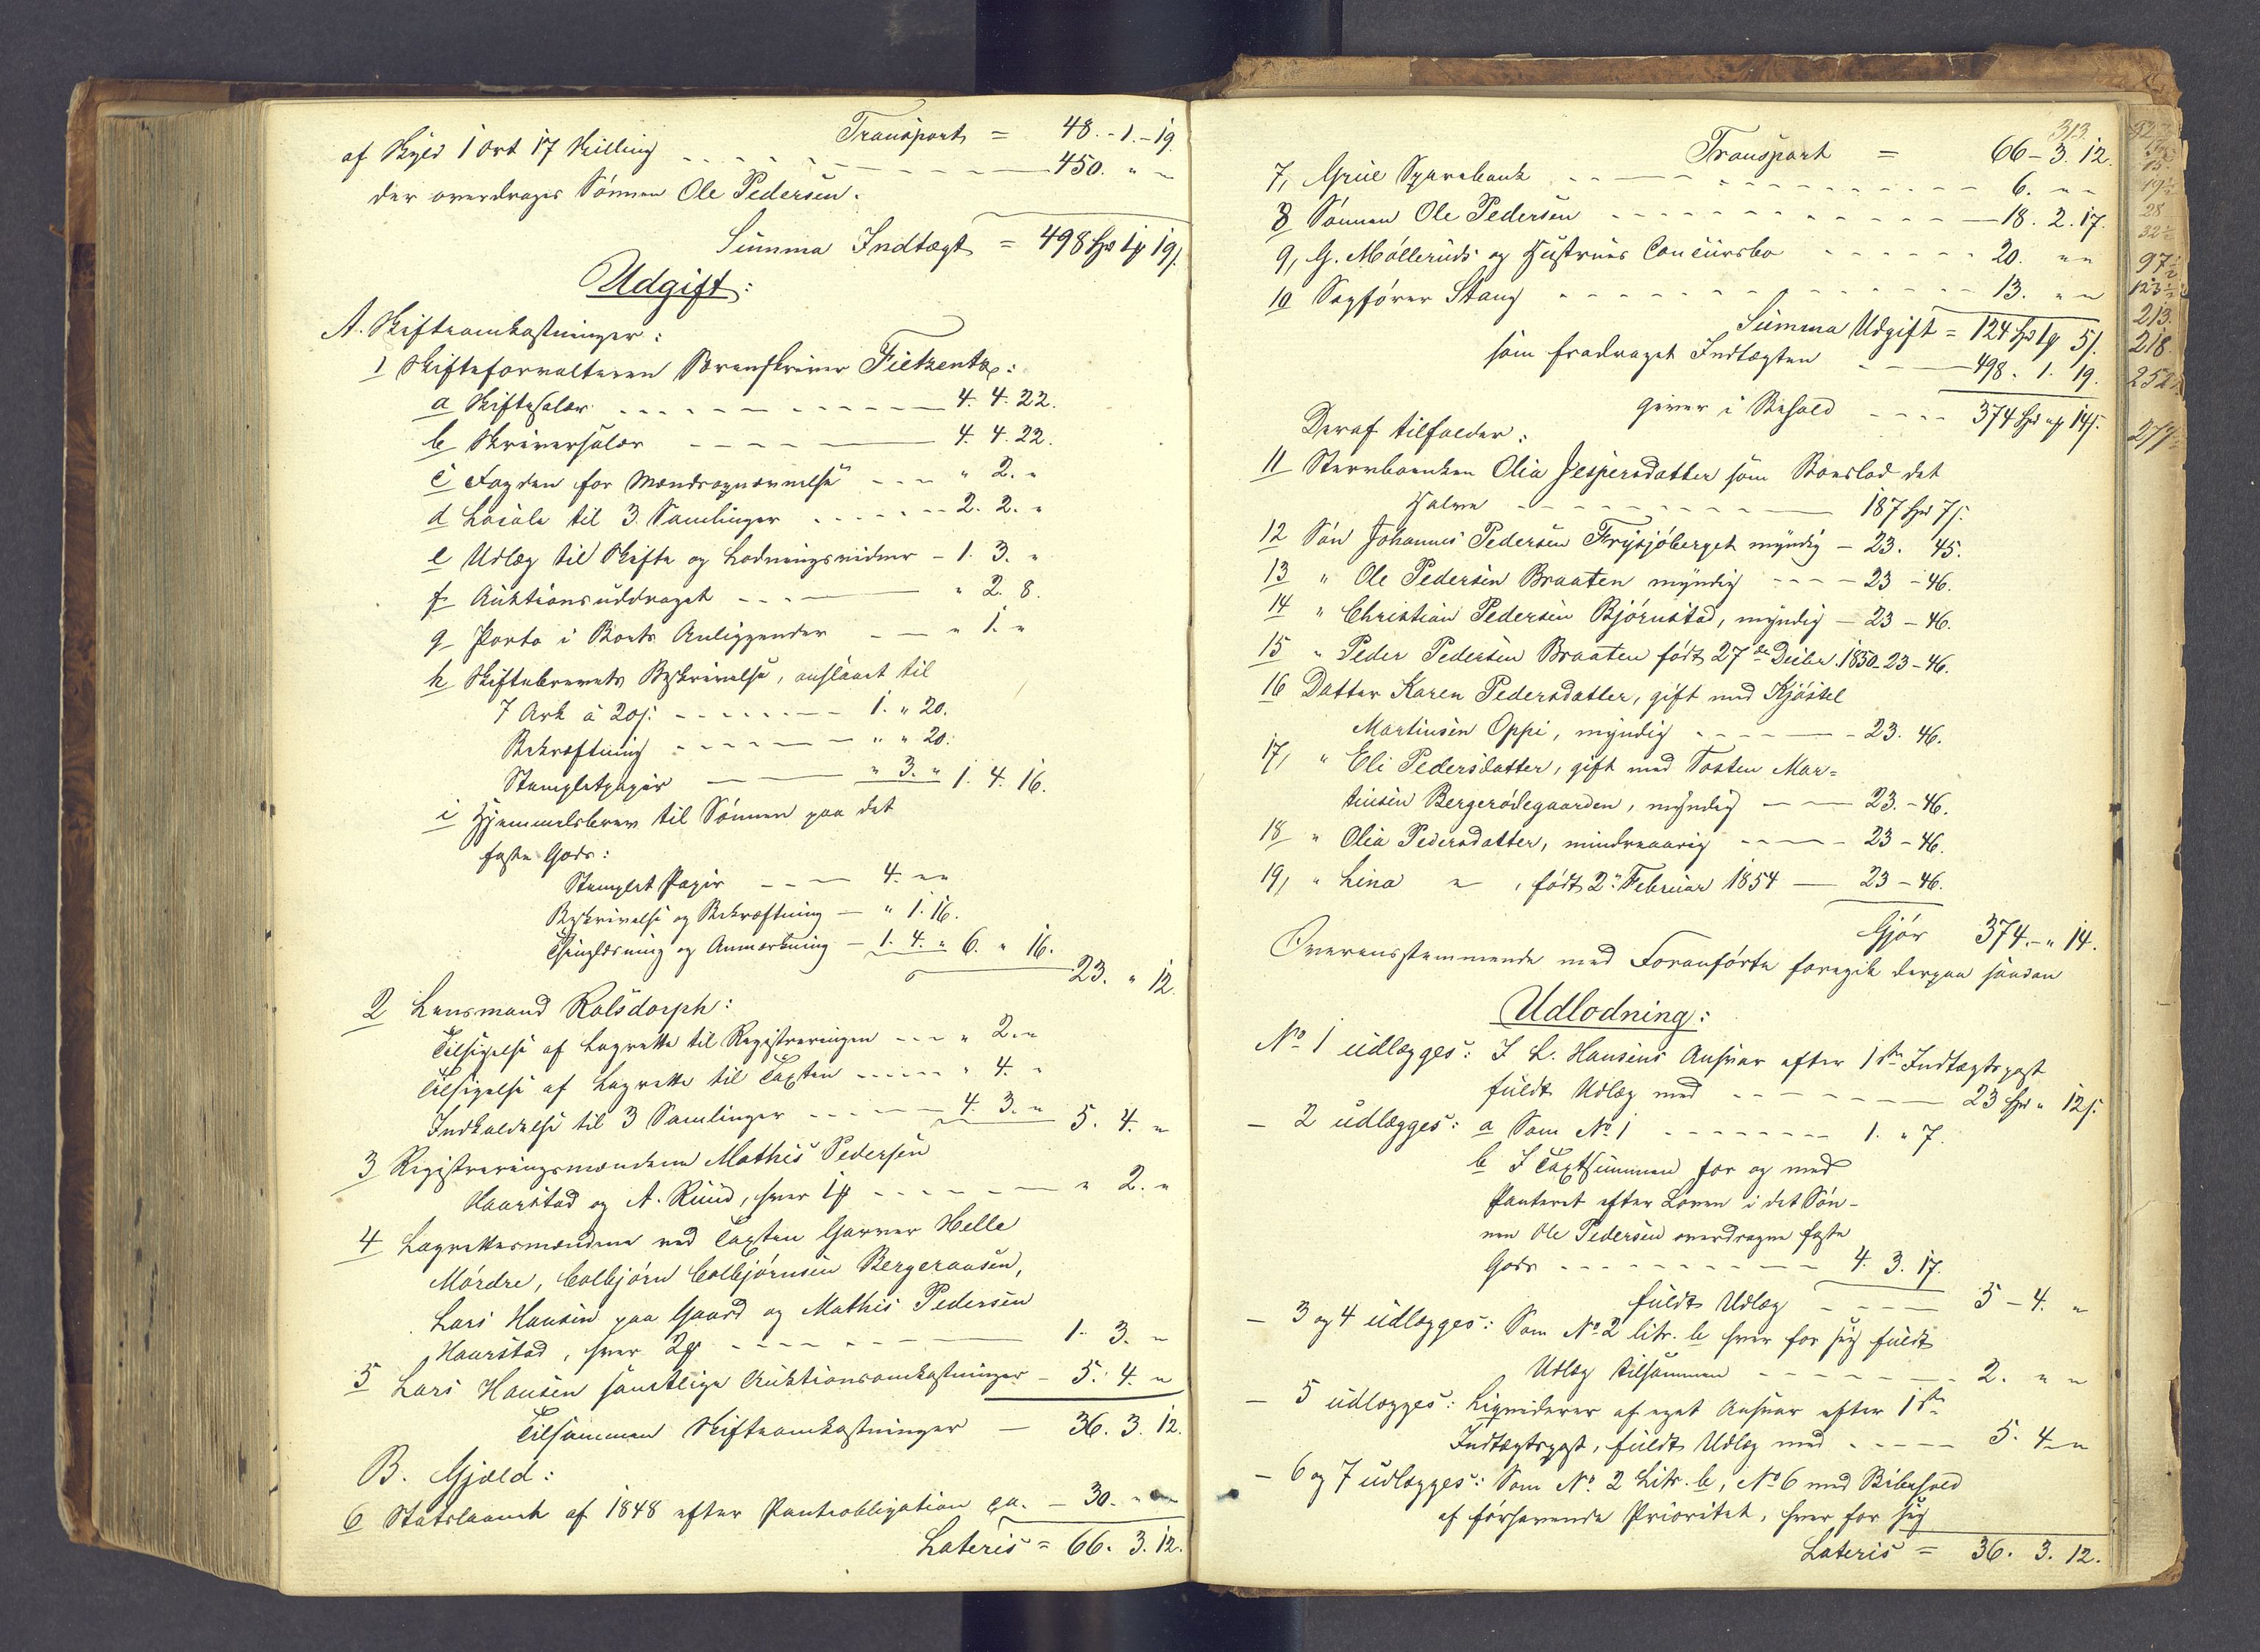 Transport = 48.-1.-19.
af Skyld 1 Ort 17 Skilling - - - - - 450. " "
der overdrages Sönnen Ole Pedersen.
Summa Indtægt = 498 Spd 1 # 19 s.
Udgift:
A. Skifteomkostninger:
1 Skifteforvalteren Sorenskriver Fietzentz:
a Skiftesalær - - - - 4. 4. 22.
b Skriversalær - - - - 4. 4. 22.
c Fogden for Mændsopnævnelse - - - " 2. "
d Locale til 3 Samlinger - - - - 2. 2. "
e Udlæg til Skifte og Lodningsvidner - 1. 3. "
f Auktionsuddraget - - - " 2. 8.
g Porto i Boets Anliggender - - - " 1. "
h Skiftebrevets Beskrivelse, anslaaet til
7 Ark à 20 s. - - - - 1. " 20.
Bekræftning - - - - " " 20.
Stempletpapir - - - " 3. " 1. 4. 16.
i Hjemmelsbrev til Sönnen paa det
faste Gods:
Stemplet Papir - - - 4. " "
Beskrivelse og Bekræftning - " 1. 16.
Thinglæsning og Anmærkning - 1. 4. " 6. " 16.
23. " 12.
2 Lensmand Rolsdorph:
Tilsigelse af Lagrette til Registreringen - - - " 2. "
Tilsigelse af Lagrette til Taxten - - - - " 4. "
Indkaldelse til 3 Samlinger - - - - 4. 3. " 5. 4. "
3 Registreringsmændene Mathis Pedersen
Haarstad og A. Ruud, hver 1 # - - - - " 2. "
4 Lagrettesmændene ved Taxten Garver Helle
Mördre, Colbjörn Colbjörnsen Bergeraasen,
Lars Hansen paa Gaard og Mathis Pedersen
Haarstad, hver 2 # - - - - 1. 3. "
5 Lars Hansen samtlige Auktionsomkostninger - 5. 4. "
Tilsammen Skifteomkostninger - 36. 3. 12.
B. Gjæld:
6 Statslaanet af 1848 efter Panteobligation ca. - 30. " "
Lateris = 66. 3. 12.
313.
Transport = 66-3.12.
7, Grue Sparebank - - - - 6. " "
8 Sönnen Ole Pedersen - - - - 18. 2. 17.
9, G. Mölleruds og Hustrues Concursbo - - - - 20. " "
10 Sagförer Stang - - - - 13. " "
Summa Udgift = 124 Spd 1 # 5 s.
som fradraget Indtægten - - - 498. 1. 19.
giver i Behold - - - - 374 Spd " # 14 s.
Deraf tilfalder:
11 Stervboenken Olia Jespersdatter som Boeslod det
Halve - - - - 187 Spd 7 s.
12 Sön Johannes Pedersen Frysjöberget myndig - 23. 45.
13 " Ole Pedersen Braaten myndig - - - - 23 - 46.
14 " Christian Pedersen Björnstad, myndig - 23 - 46.
15 " Peder Pedersen Braaten födt 27de Decbr. 1850 - 23 - 46.
16 Datter Karen Pedersdatter, gift med Kjöstel
Martinsen Oppi, myndig - - - - 23. 46.
17, " Eli Pedersdatter, gift med Tosten Mar=
tinsen Bergerödegaarden, myndig - - - 23. - 46.
18 " Olia Pedersdatter, mindreaarig - - - - 23 - 46.
19, " Lina " , födt 2 Februar 1854 - 23 - 46.
Gjör 374. - " 14.
Overensstemmende med Foranförte foregik derpaa saadan
Udlodning:
No 1 udlægges: I L. Hansens Ansvar efter 1ste Indtægtspost
fuldt Udlæg med - - - - 23 Spd " 12 s.
- 2 udlægges: a Som No 1 - - - - 1. " 7.
b I Taxtsummen for og med
Panteret efter Loven i det Sön-
nen Ole Pedersen overdragne faste
Gods - - - - 4. 3. 17.
fuldt Udlæg - - - - 5 - 4. "
- 3 og 4 udlægges: Som No 2 litr. b hver for sig fuldt
Udlæg tilsammen - - - - 2. " "
- 5 udlægges: Liqviderer af eget Ansvar efter 1ste
Indtægtspost, fuldt Udlæg med - - - - 5. 4. "
- 6 og 7 udlægges: Som No 2 Litr. b, No 6 med Bibehold
af förhavende Prioritet, hver for sig
Lateris = 36. 3. 12.